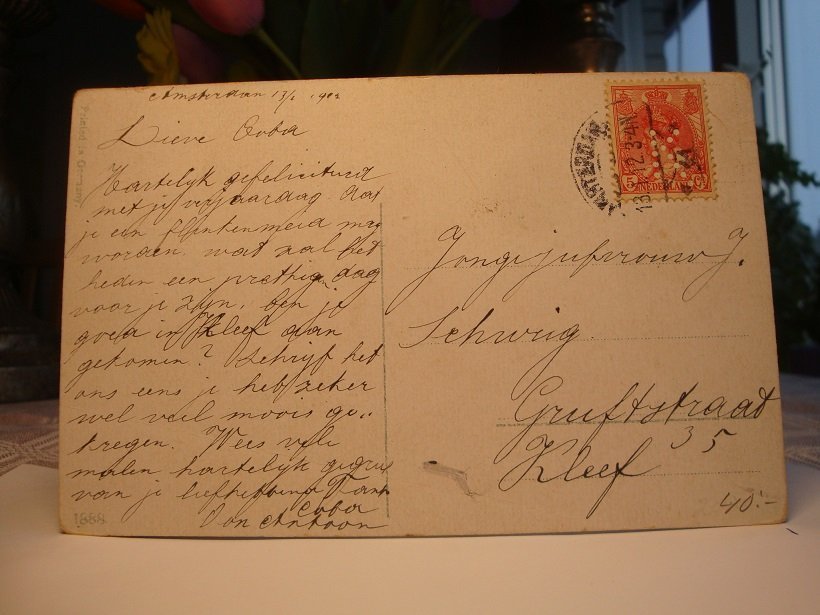 Amsterdam 13/2 1912
Lieve Coba
Hartelijk gefeliciteerd
met je verjaardag dat
je een flinkemeid mag
worden. wat zal het
heden een prettige dag
voor je zijn. ben je
goed in Kleef aan
gekomen? Schrijf het
ons eens je heb zeker
wel veil moois ge..
kregen. Wees vele
malen hartelijk gegroet
van je liefhebbend Tante
Coba
Oom Antoon
Jongejufvrouw J.
Schwig
Gruftstraat
35
Kleef
40.-
1888
Printed in Germany
AMSTERDAM
12 3-4N
5 Ct
NEDERLAND